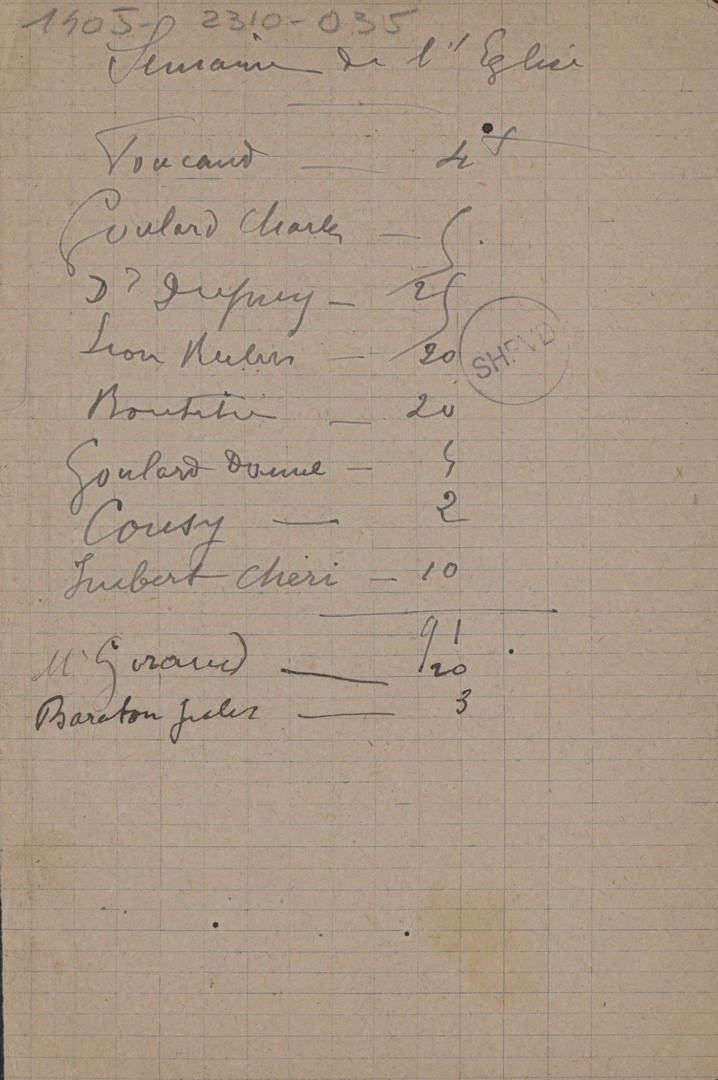 1905- 2310-035
Semaine de l'Eglise
Toucaud — 4
Goulard Charles — 5
Dr Dupuy — 25
Leon — 20
— 20
Goulard Domme — 5
Cousy — 2
Imbert Chéri — 10
91
Mr Giraud — 20
Baraton Jules — 3